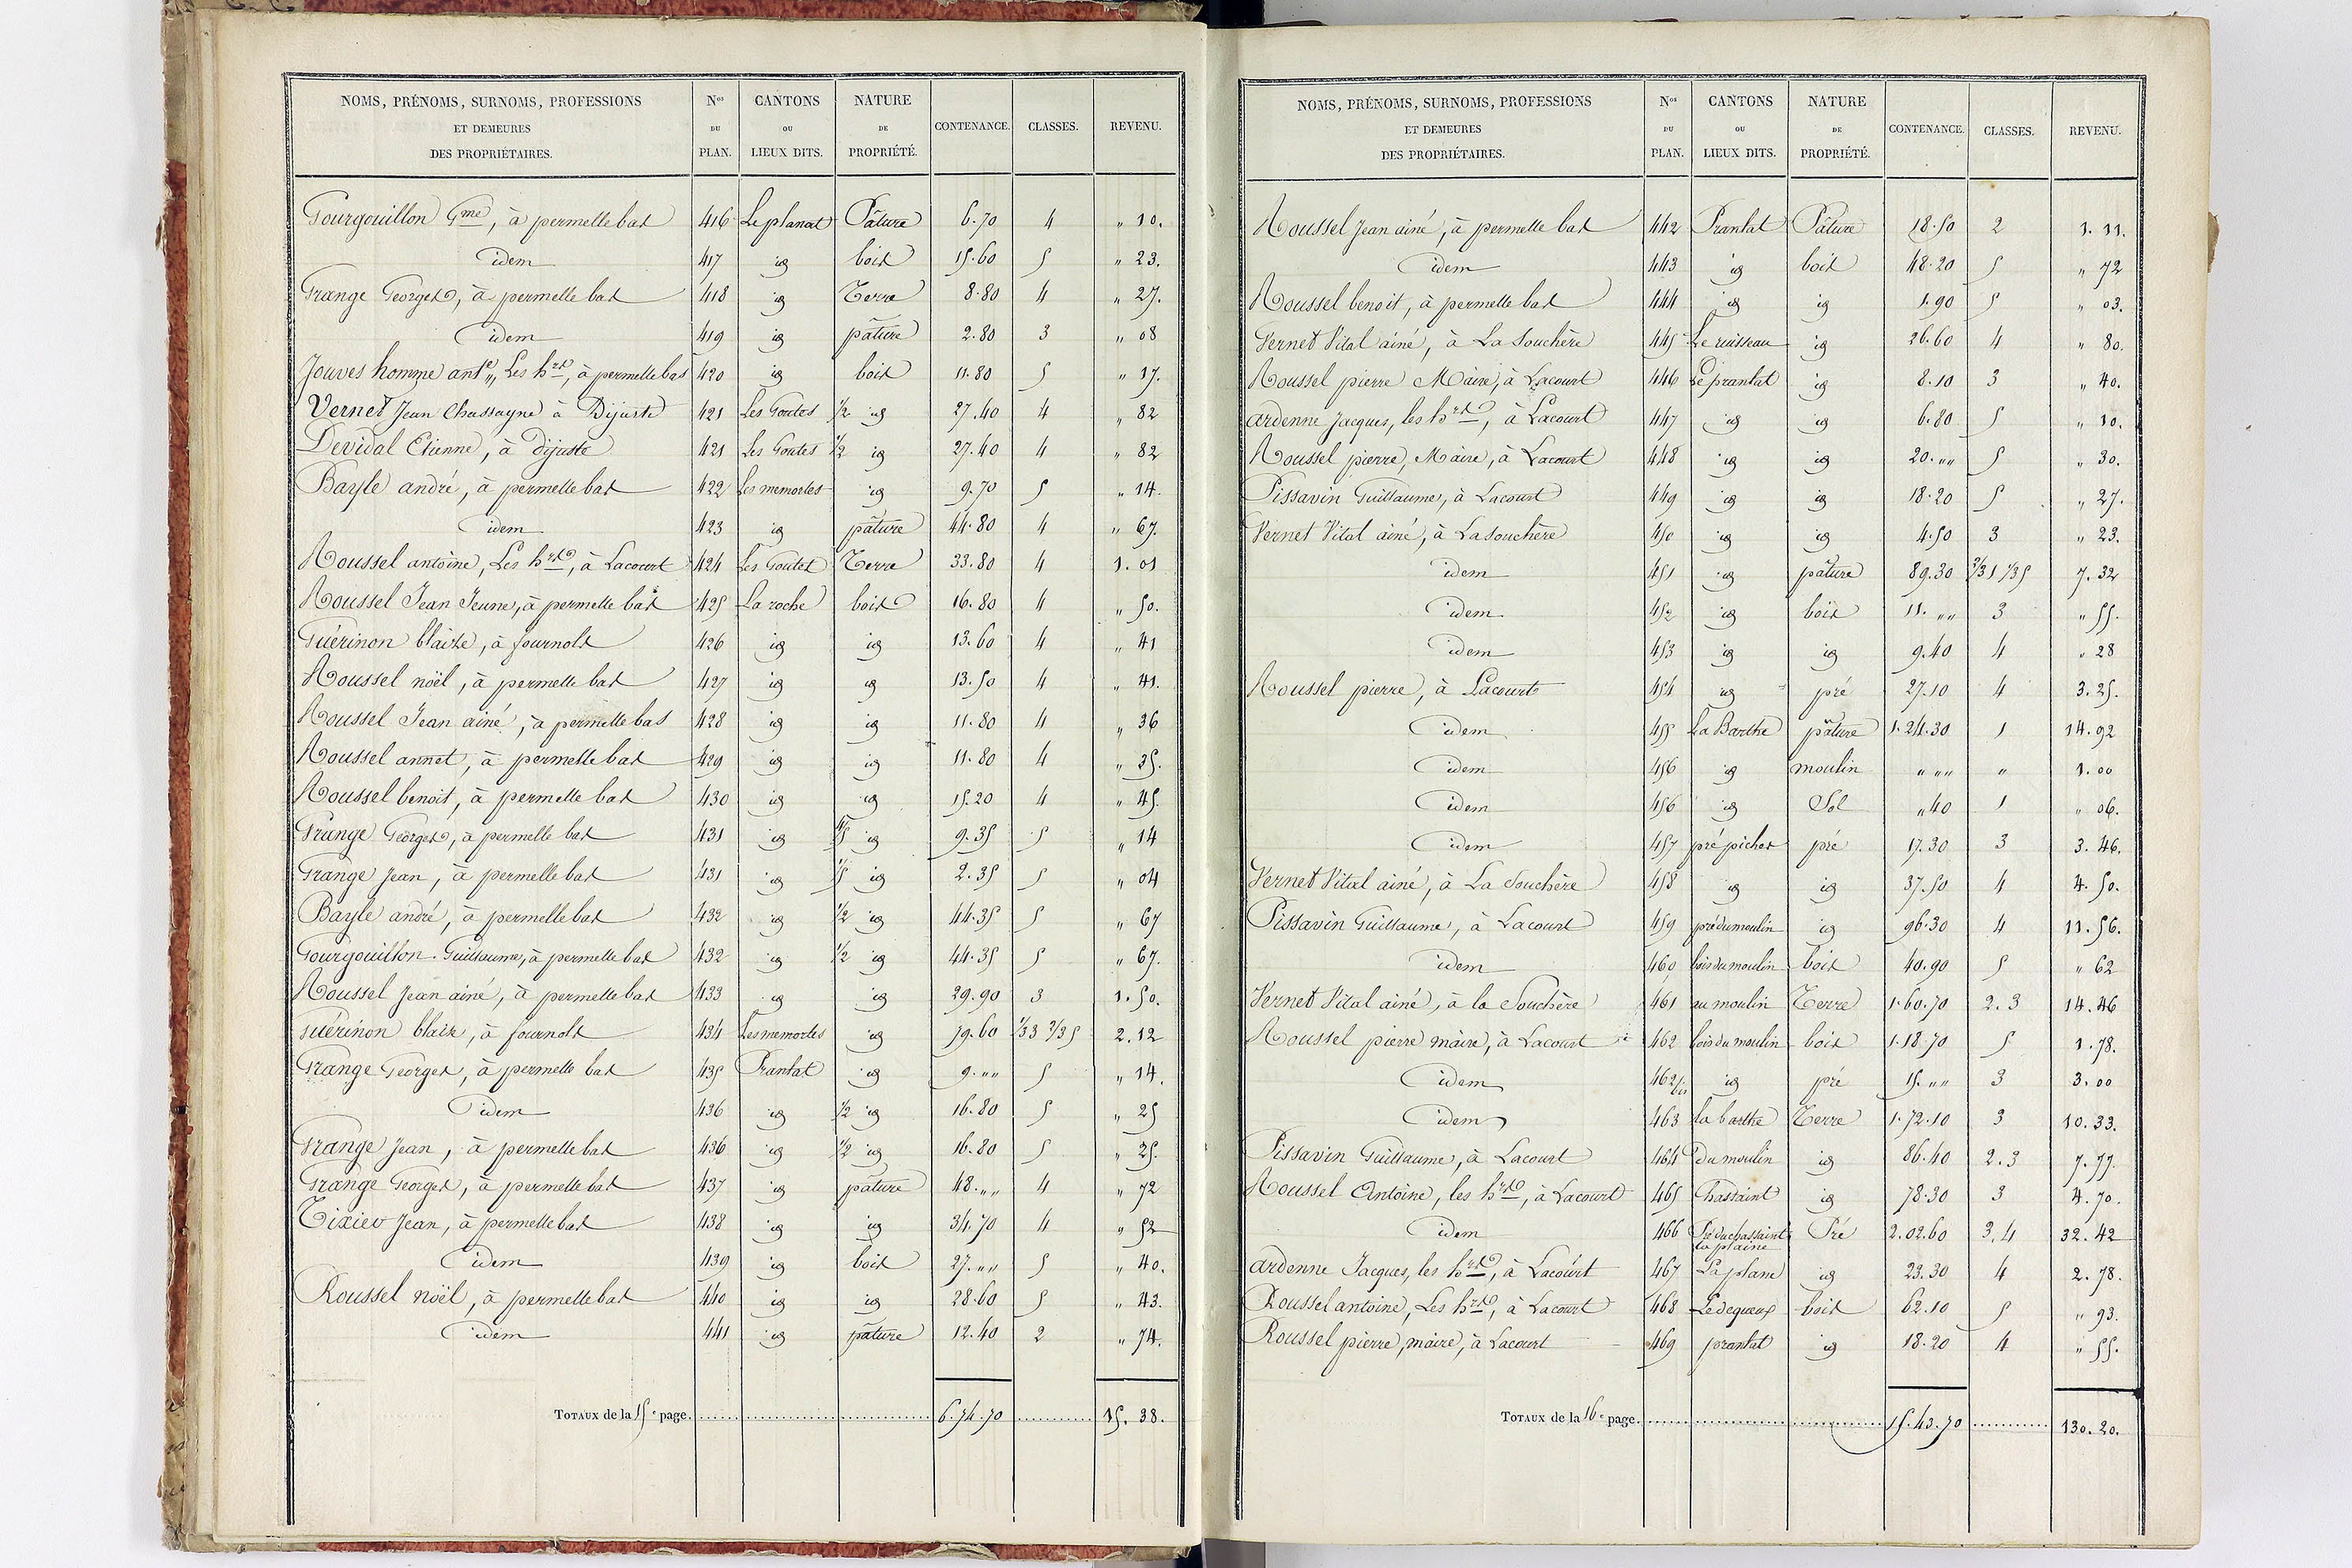 NOMS, PRÉNOMS, SURNOMS, PROFESSIONS ET DEMEURES DES PROPRIÉTAIRES. Nos DU PLAN. CANTONS OU LIEUX DITS. NATURE DE PROPRIÉTÉ. CONTENANCE. CLASSES. REVENU.
Gourgouillon Gme, à permelle bas 416 Le planat Pâture 6.70 4 " 10.
idem 417 id bois 15.60 5 " 23.
Grange Georges, à permelle bas 418 id Terre 8.80 4 " 27.
idem 419 id pâture 2.80 3 " 08
Jouves homme ant.e, Les hrs, à permelle bas 420 id bois 11.80 5 " 17.
Vernet Jean Chassagne à Dijuste 421 Les Goutes 1/2 id 27.40 4 " 82
Devidal Etienne, à Dijuste 421 Les Goutes 1/2 id 27.40 4 " 82
Bayle andré, à permelle bas 422 Les memortes id 9.70 5 " 14.
idem 423 id pâture 44.80 4 " 67.
Roussel antoine, Les hrs, à Lacourt 424 Les Goutet Terre 33.80 4 1.01
Roussel Jean Jeune, à permelle bas 425 La roche bois 16.80 4 " 50.
Guérinon blaize, à fournols 426 id id 13.60 4 " 41
Roussel noël, à permelle bas 427 id id 13.50 4 " 41.
Roussel Jean ainé, à permelle bas 428 id id 11.80 4 " 36
Roussel annet, à permelle bas 429 id id 11.80 4 " 35.
Roussel benoit, à permelle bas 430 id id 15.20 4 " 45.
Grange Georges, à permelle bas 431 id 4/5 id 9.35 5 " 14
Grange Jean, à permelle bas 431 id 1/5 id 2.35 5 " 04
Bayle andré, à permelle bas 432 id 1/2 id 44.35 5 " 67
Gourgouillon Guillaume, à permelle bas 432 id 1/2 id 44.35 5 " 67.
Roussel Jean ainé, à permelle bas 433 id id 29.90 3 1.50.
Guérinon blaize, à fournols 434 Les memortes id 79.60 1/33 2/35 2.12
Grange Georges, à permelle bas 435 Prantat id 9."" 5 " 14.
idem 436 id 1/2 id 16.80 5 " 25
Grange Jean, à permelle bas 436 id 1/2 id 16.80 5 " 25.
Grange Georges, à permelle bas 437 id pâture 48."" 4 " 72
Tixier Jean, à permelle bas 438 id id 34.70 4 " 52
idem 439 id bois 27."" 5 " 40.
Roussel noël, à permelle bas 440 id id 28.60 5 " 43.
idem 441 id pâture 12.40 2 " 74.
TOTAUX de la 15e page. 6.74.70 15.38.
NOMS, PRÉNOMS, SURNOMS, PROFESSIONS ET DEMEURES DES PROPRIÉTAIRES. Nos DU PLAN. CANTONS OU LIEUX DITS. NATURE DE PROPRIÉTÉ. CONTENANCE. CLASSES. REVENU.
Roussel Jean ainé, à permelle bas 442 Prantat Pâture 18.50 2 1.11.
idem 443 id bois 48.20 5 " 72
Roussel benoit, à permelle bas 444 id id 1.90 5 " 03.
Vernet Vital ainé, à La Souchère 445 Le ruisseau id 26.60 4 " 80.
Roussel pierre Maire, à Lacourt 446 Le prantat id 8.10 3 " 40.
ardenne Jacques, les hrs, à Lacourt 447 id id 6.80 5 " 10.
Roussel pierre, Maire, à Lacourt 448 id id 20."" 5 " 30.
Pissavin Guillaume, à Lacourt 449 id id 18.20 5 " 27.
Vernet Vital ainé, à La Souchère 450 id id 4.50 3 " 23.
idem 451 id pâture 89.30 2/31 1/35 7.32
idem 452 id bois 11."" 3 " 55.
idem 453 id id 9.40 4 " 28
Roussel pierre, à Lacourt 454 id pré 27.10 4 3.25.
idem 455 La Barthe pâture 1.24.30 1 14.92
idem 456 id moulin " "" " 1.00
idem 456 id Sol " 40 1 " 06.
idem 457 pré picher pré 17.30 3 3.46.
Vernet Vital ainé, à La Souchère 458 id id 37.50 4 4.50.
Pissavin Guillaume, à Lacourt 459 pré du moulin id 96.30 4 11.56.
idem 460 bois du moulin bois 40.90 5 " 62
Vernet Vital ainé, à la Souchère 461 au moulin Terre 1.60.70 2.3 14.46
Roussel pierre maire, à Lacourt 462 bois du moulin bois 1.18.70 5 1.78.
idem 462 bis id pré 15."" 3 3.00
idem 463 la barthe Terre 1.72.10 3 10.33.
Pissavin Guillaume, à Lacourt 464 du moulin id 86.40 2.3 7.77.
Roussel Antoine, les hrs, à Lacourt 465 Chassaint id 78.30 3 4.70.
idem 466 Pré du chassaint la plaine Pré 2.02.60 3.4 32.42
ardenne Jacques, les hrs, à Lacourt 467 La plane id 23.30 4 2.78.
Roussel antoine, Les hrs, à Lacourt 468 bois 62.10 5 " 93.
Roussel pierre, maire, à Lacourt 469 prantat id 18.20 4 " 55.
TOTAUX de la 16e page. 15.43.70 130.20.